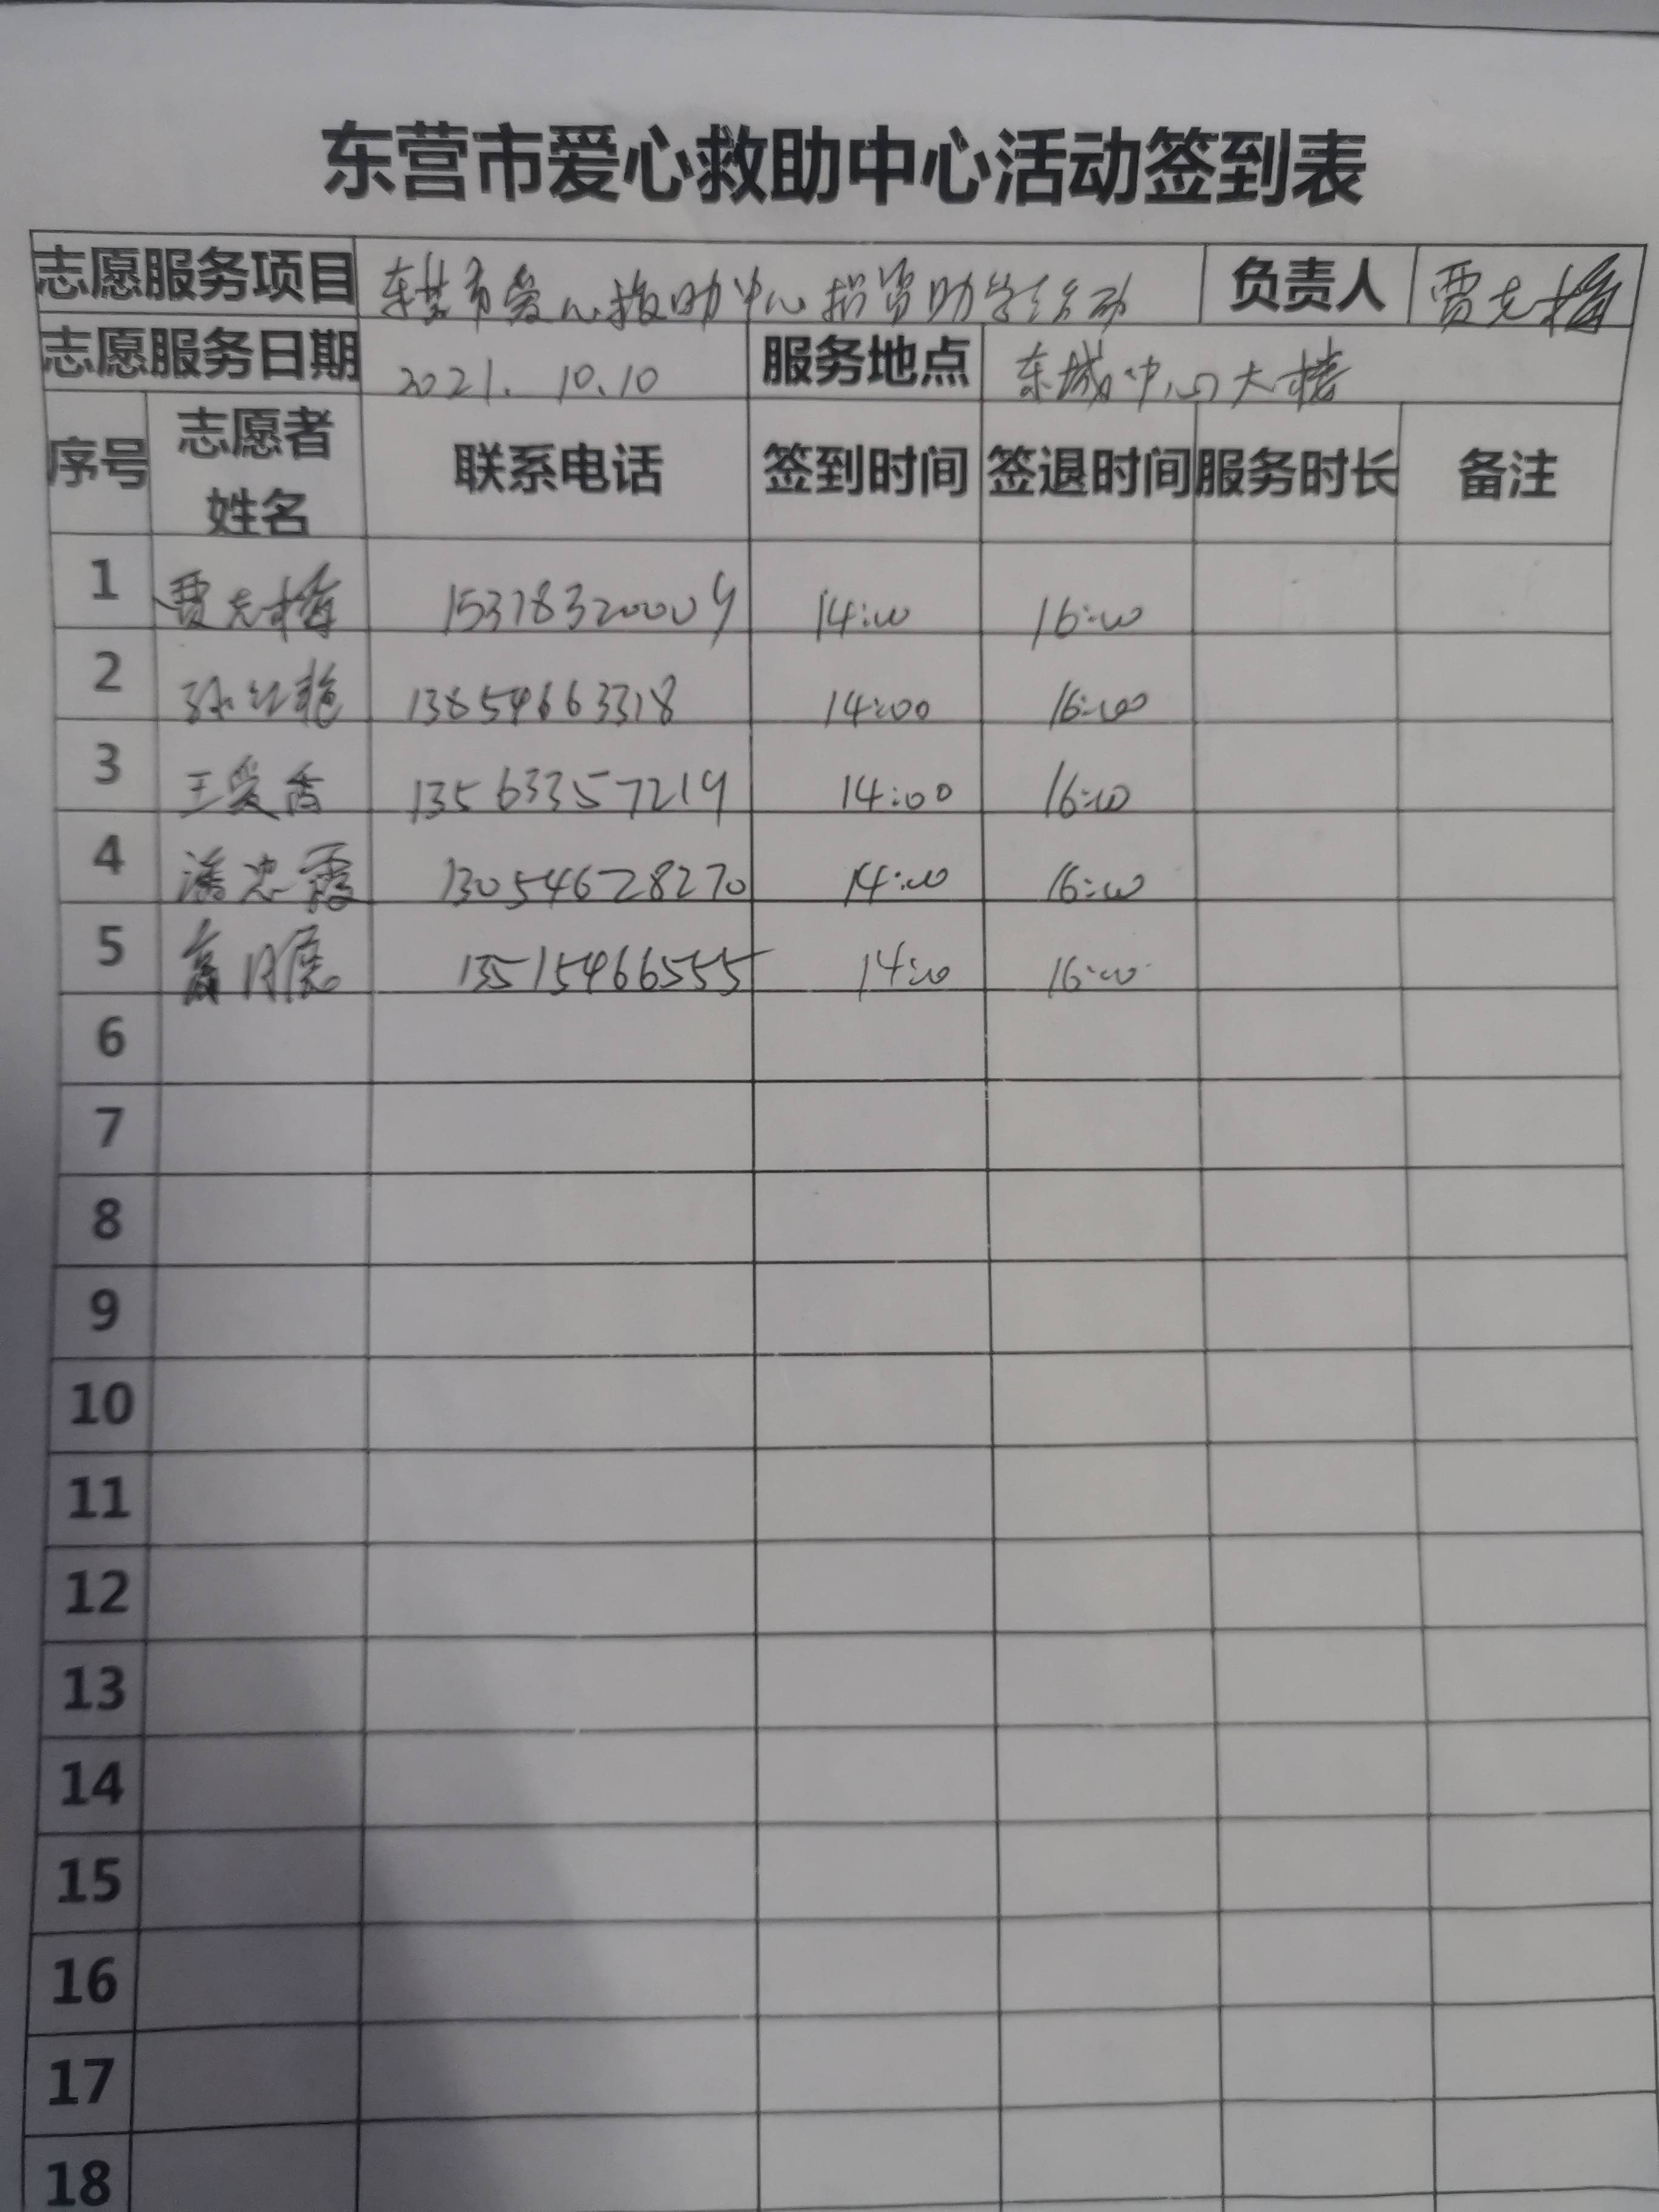 东营市爱心救助中心活动签到表
志愿服务项目 东营市爱心救助中心捐资助学活动 负责人 贾克梅
志愿服务日期 2021.10.10 服务地点 东城中心大楼
序号 志愿者姓名 联系电话 签到时间 签退时间 服务时长 备注
1 贾克梅 14:00 16:00
2 孙红艳 13854663318 14:00 16:00
3 王爱香 13563357219 14:00 16:00
4 潘忠霞 13054628270 14:00 16:00
5 13515466555 14:00 16:00
6
7
8
9
10
11
12
13
14
15
16
17
18